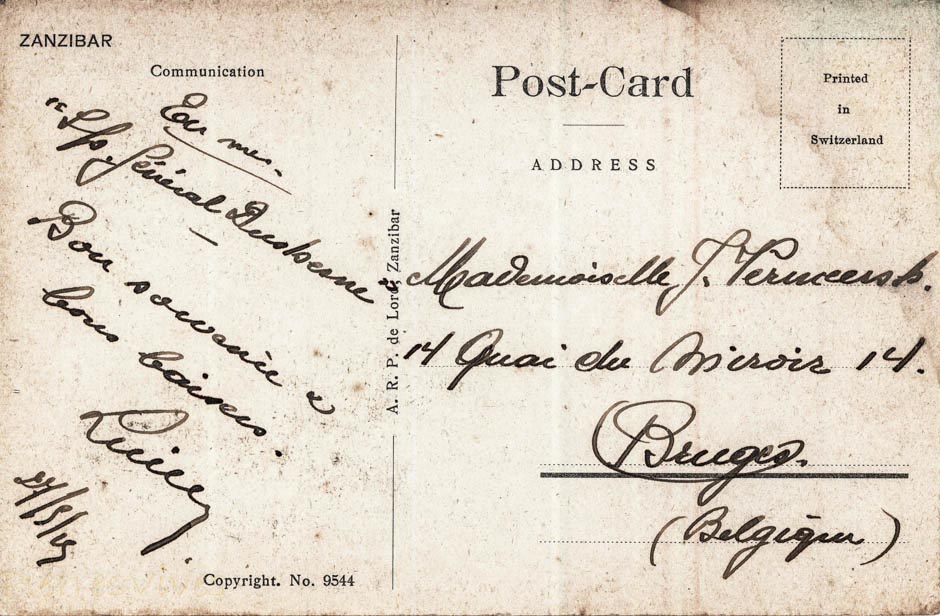 ZANZIBAR
Communication
En mer
"S/S. Général Duchesne"
Bon souvenir &
bons baisers.
27/5/
Copyright. No. 9544
A. R. P. de Lord, Zanzibar
Post-Card
ADDRESS
Printed
in
Switzerland
Mademoiselle J. Vermeersch.
14 Quai du Miroir 14.
Bruges.
(Belgique)